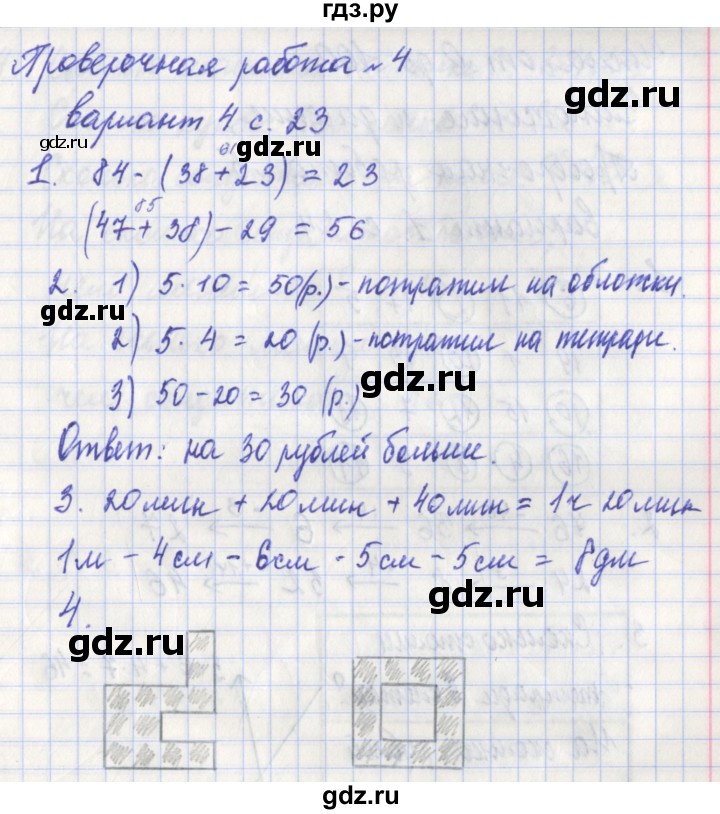 гдз.ру
Проверочная работа № 4
вариант 4 с. 23
gdz.ru
gdz.ru
gdz.ru
61
1. 84 - (38 + 23) = 23
85
(47 + 38) - 29 = 56
2. 1) 5 · 10 = 50 (р.) - потратили на обложки.
gdz.ru
2) 5 · 4 = 20 (р.) - потратил на тетради.
3) 50 - 20 = 30 (р.)
gdz.ru
Ответ: на 30 рублей больше.
3. 20 мин + 20 мин + 40 мин = 1 ч 20 мин
1 м - 4 см - 6 см - 5 см - 5 см = 8 дм
gdz.ru
4.
gdz.ru
gdz.ru
gdz.ru